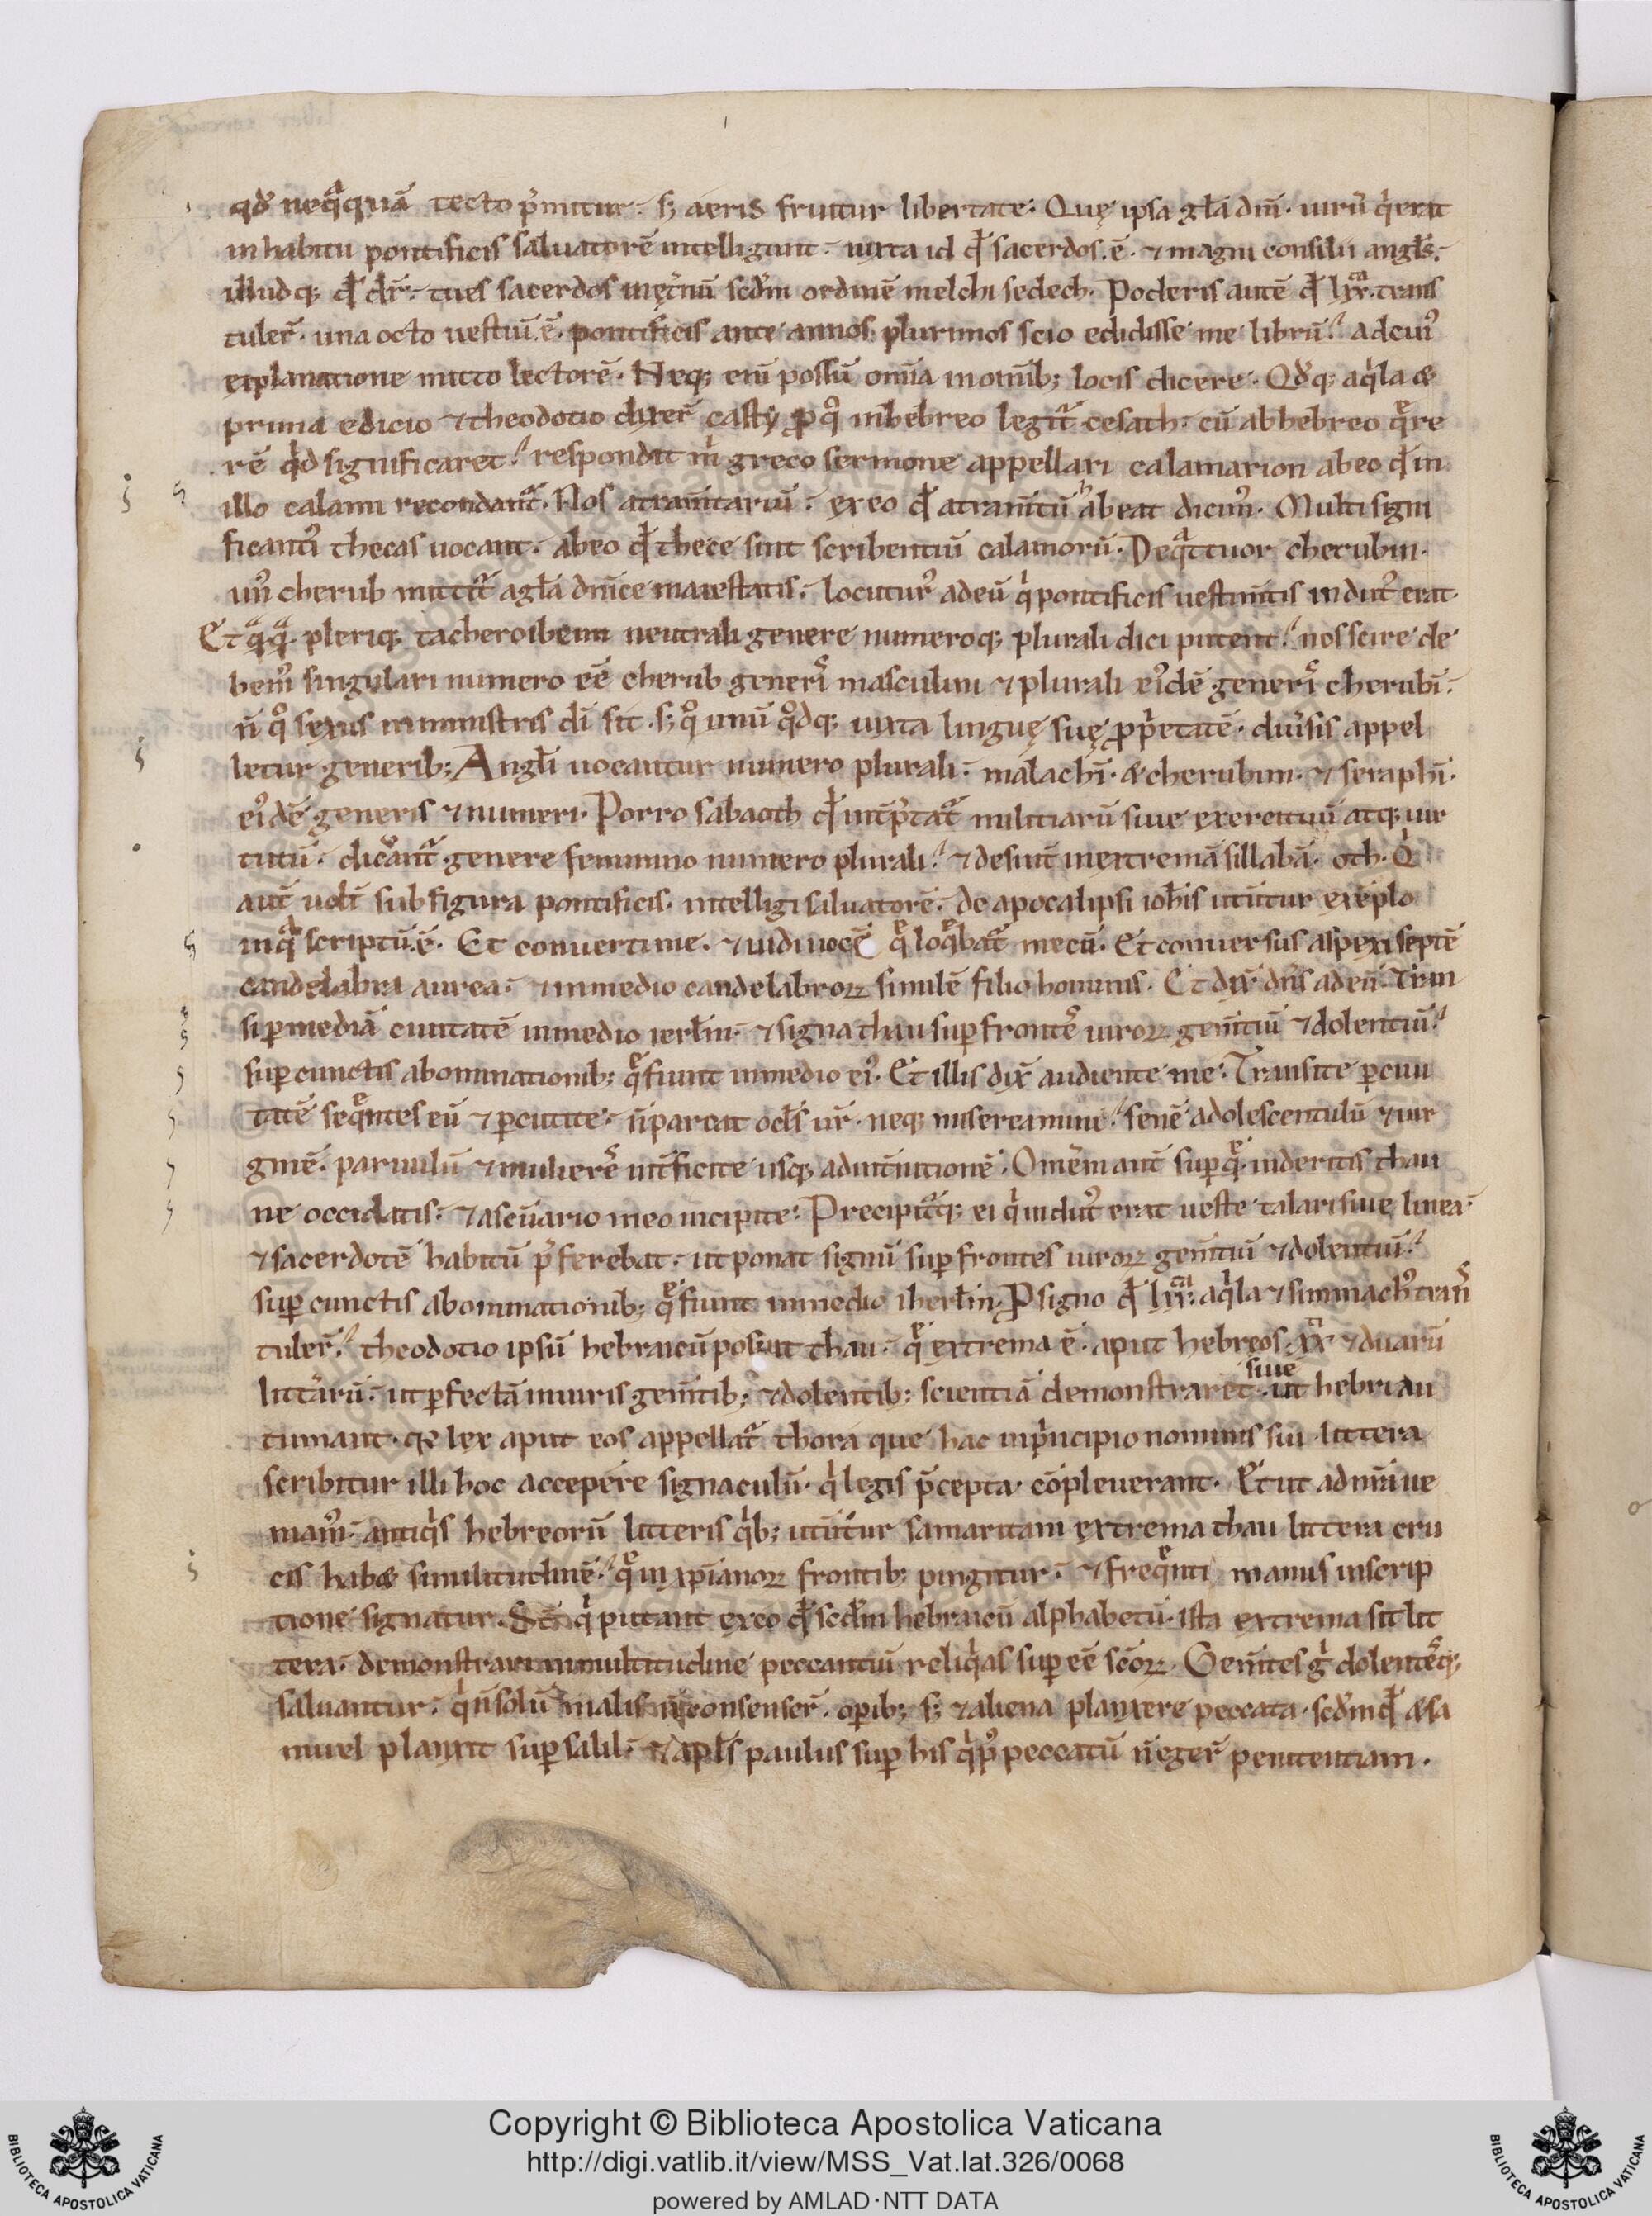 qđ neqᵃquā tecto p̄mitur. sʒ aeris fruitur libertate. Quę ipsa gła dnī. uirū qⁱ erat
in habitu pontificis saluatorē intelligunt. iuxta id qđ sacerdos .ē. ⁊ magni consilii angłs.
illudqꝫ qđ dr̄. tu es sacerdos inęt̄nū scđm ordinē melchisedech. Poderis autē qđ lxxᵗᵃ. trans
tuler̄. una octo uestiū .ē. pontificis ante annos plurimos scio edidisse me librū. ad cuiꝰ
explanatione mitto lectorē. Neqꝫ eni possū omīa in omībꝫ locis dicere. Qđqꝫ aqⁱla &
prima edicio ⁊ theodotio dixer̄ casty ꝓ qͦ in hebreo legit᷑ cesath. cū ab hebreo qͤre
rē qⁱd significaret. respondit m̄ greco sermone appellari calamarion ab eo qđ in
illo calami recondant᷑. Nos atram̄tariū. ex eo qđ atram̄tū ʰabeat dicimꝰ. Multi signi
ficantiꝰ thecas uocant. ab eo qđ thece sint scribentiū calamorū. De qᵃttuor cherubin.
unꝰ cherub mittit᷑ a gła dn̄ice maiestatis. locuturꝰ ad eū qⁱ pontificis uestim̄tis indutꝰ erat.
Et qᵃqᵃ. pleriqꝫ tacheroibem neutrali genere numeroqꝫ plurali dici putent. nos scire de
bemꝰ singulari numero eē cherub generis masculini ⁊ plurali eiꝰdē generis cherubī.
n̄ qͦ sexus in ministris dī sit. sʒ qͦ unū qͦdqꝫ iuxta linguę suę ꝓprⁱetatē. diuersis appel
letur generibꝫ Angłi uocantur numero plurali. malachī. & cherubim. ⁊ seraphī.
eiꝰdē generis ⁊ numeri. Porro sabaoth qđ int̄p̄tat᷑ militiarū siue exercituū atqꝫ uir
tutū. dicant᷑ genere feminino numero plurali. ⁊ desin̄t in extremā sillabā. oth. Qⁱ
aut̄ uolt̄ sub figura pontificis. intelligi saluatorē. de apocalipsi ioh̄is utūtur exēplo
in qᵃ scriptū .ē. Et conuerti me. ⁊ uidi uocē qͤ loqͤbat᷑ mecū. Et conuersus aspexi septē
candelabra aurea. ⁊ in medio candelabroꝝ similē filio hominis. Et dix̄ dn̄s ad eū. Tran
si ꝑ mediā ciuitatē in medio ierłm. ⁊ signa thau suꝑ frontes uiroꝝ gem̄tiū ⁊ dolentiū.
suꝑ cunctis abominationibꝫ qͤ fiunt in medio eiꝰ. Et illis dix̄ audiente me. Transite ꝑ ciui
tatē seqͤntes eū ⁊ ꝑcutite. n̄ parcat ocłs ur̄. neqꝫ misereamini. senē adolescentulū ⁊ uir
ginē. paruulū ⁊ mulierē int̄ficite usqꝫ ad int̄nitionē. Omn̄em aut̄ suꝑ qͤ. uideritis thau
ne occidatis. ⁊ a scūario meo incipite. Precipit᷑qꝫ ei qⁱ indutꝰ erat ueste talari siue linea.
⁊ sacerdotē habitū p̄ferebat. ut ponat signū suꝑ frontes uiroꝝ gem̄tiū ⁊ dolentiū.
suꝑ cunctis abominationibꝫ qͤ fiunt in medio iherłm. Ꝓ signo qđ lxxᵗᵃ. aqⁱla ⁊ simmachꝰ trans
tuler̄. theodotio ipsū hebraicū posuit thau. qͤ extrema ē. aput hebreos. xxᵃ ⁊ duarū
litt̄arū. ut ꝑfectā in uiris gem̄tibꝫ ⁊ dolentibꝫ scientiā demonstraret. siue ut hebri au
tumant. qͣ lex aput eos appellat᷑ thora que hac in p̄ncipio nominis sui littera
scribitur illi hoc accepere signaculū. qⁱ legis p̄cepta. cōpleuerant. Et ut ad n̄ra ue
niamꝰ. antiqⁱs hebreorū litteris qⁱbꝫ utūtur samaritani extrema thau littera cru
cis hab& similitudinē. qͤ in xp̄ianoꝝ frontibꝫ pingitur. ⁊ freqͤnti manus inscrip
tione signatur. St̄ qⁱ putant ex eo qđ scđm hebraicū alphabetū. ista extrema sit lit
tera. demonstrari in multitudine peccantiū reliqⁱas suꝑ eē scōꝝ. Gem̄tes gⁱ dolentesqꝫ
saluantur. qⁱ n̄ solū malis n̄ consenser̄. oꝑibꝫ sʒ ⁊ aliena planxere peccata. scđm qđ & sa
muel planxit suꝑ saul. ⁊ apłs paulus suꝑ his qⁱ pꝰ peccatū n̄ eger̄ penitentiam.
Copyright © Biblioteca Apostolica Vaticana
http://digi.vatlib.it/view/MSS_Vat.lat.326/0068
powered by AMLAD·NTT DATA
BIBLIOTECA APOSTOLICA VATICANA
BIBLIOTECA APOSTOLICA VATICANA